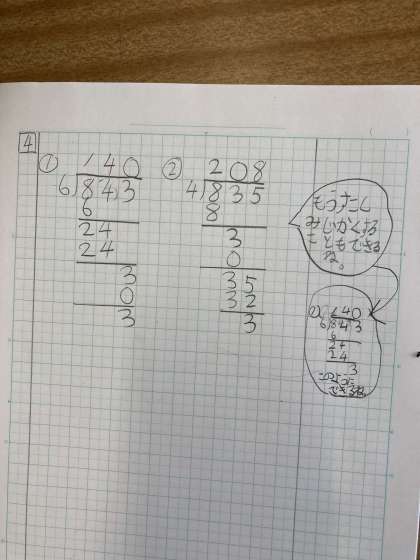 4
① 140
6)843
6
24
24
3
0
3
② 208
4)835
8
3
0
35
32
3
もう少し
みじかくする
こともできる
ね。
140
6)843
6
24
24
3
このように
できるね